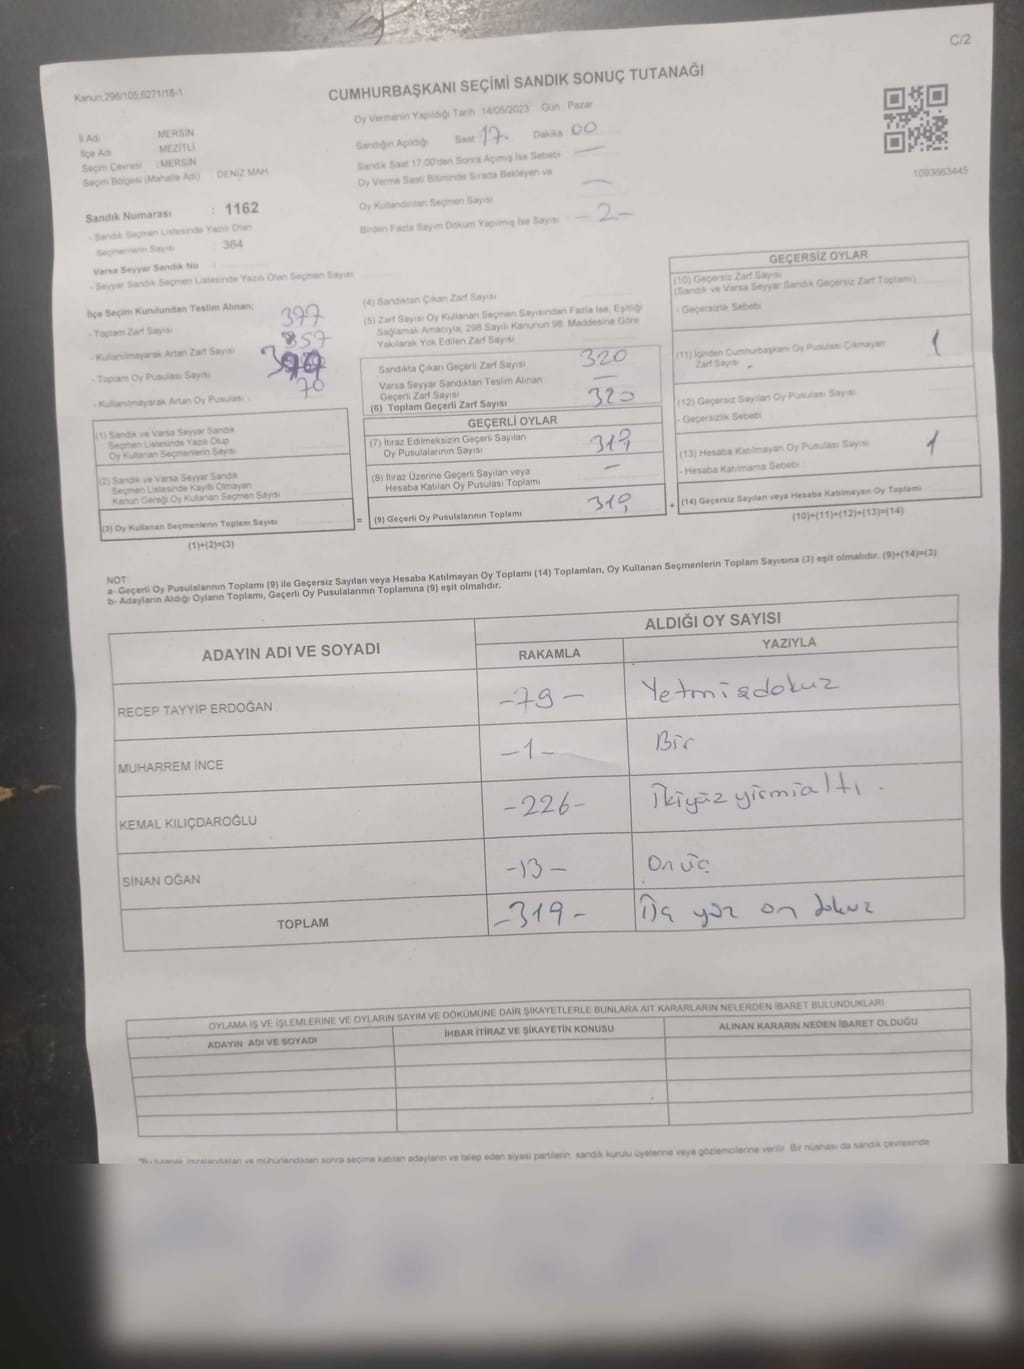 C/2
Kanun:298/105,6271/18-1
CUMHURBAŞKANI SEÇİMİ SANDIK SONUÇ TUTANAĞI
Oy Vermenin Yapıldığı Tarih 14/05/2023 Gün: Pazar
İl Adı MERSİN
İlçe Adı MEZİTLİ
Seçim Çevresi :MERSİN
Seçim Bölgesi (Mahalle Adı) DENİZ MAH.
Sandığın Açıldığı Saat 17. Dakika 00
Sandık Saat 17:00'den Sonra Açılmış İse Sebebi —
Oy Verme Saati Bitiminde Sırada Bekleyen ve
Oy Kullandırılan Seçmen Sayısı —
Birden Fazla Sayım Döküm Yapılmış İse Sayısı -2-
1093663445
Sandık Numarası : 1162
- Sandık Seçmen Listesinde Yazılı Olan
Seçmenlerin Sayısı : 364
Varsa Seyyar Sandık No :
- Seyyar Sandık Seçmen Listesinde Yazılı Olan Seçmen Sayısı
İlçe Seçim Kurulundan Teslim Alınan;
- Toplam Zarf Sayısı 377
- Kullanılmayarak Artan Zarf Sayısı
- Toplam Oy Pusulası Sayısı
- Kullanılmayarak Artan Oy Pusulası : 70
(1) Sandık ve Varsa Seyyar Sandık
Seçmen Listesinde Yazılı Olup
Oy Kullanan Seçmenlerin Sayısı
(2) Sandık ve Varsa Seyyar Sandık
Seçmen Listesinde Kayıtlı Olmayan
Kanun Gereği Oy Kullanan Seçmen Sayısı
(3) Oy Kullanan Seçmenlerin Toplam Sayısı =
(1)+(2)=(3)
(4) Sandıktan Çıkan Zarf Sayısı
(5) Zarf Sayısı Oy Kullanan Seçmen Sayısından Fazla İse, Eşitliği
Sağlamak Amacıyla, 298 Sayılı Kanunun 98. Maddesine Göre
Yakılarak Yok Edilen Zarf Sayısı
Sandıkta Çıkan Geçerli Zarf Sayısı 320
Varsa Seyyar Sandıktan Teslim Alınan
Geçerli Zarf Sayısı —
(6) Toplam Geçerli Zarf Sayısı 320
GEÇERLİ OYLAR
(7) İtiraz Edilmeksizin Geçerli Sayılan
Oy Pusulalarının Sayısı 319
(8) İtiraz Üzerine Geçerli Sayılan veya
Hesaba Katılan Oy Pusulası Toplamı —
(9) Geçerli Oy Pusulalarının Toplamı 319 +
GEÇERSİZ OYLAR
(10) Geçersiz Zarf Sayısı
(Sandık ve Varsa Seyyar Sandık Geçersiz Zarf Toplamı)
- Geçersizlik Sebebi
(11) İçinden Cumhurbaşkanı Oy Pusulası Çıkmayan
Zarf Sayısı 1
(12) Geçersiz Sayılan Oy Pusulası Sayısı
- Geçersizlik Sebebi
(13) Hesaba Katılmayan Oy Pusulası Sayısı 1
- Hesaba Katılmama Sebebi :
(14) Geçersiz Sayılan veya Hesaba Katılmayan Oy Toplamı
(10)+(11)+(12)+(13)=(14)
NOT:
a- Geçerli Oy Pusulalarının Toplamı (9) ile Geçersiz Sayılan veya Hesaba Katılmayan Oy Toplamı (14) Toplamları, Oy Kullanan Seçmenlerin Toplam Sayısına (3) eşit olmalıdır. (9)+(14)=(3)
b- Adayların Aldığı Oyların Toplamı, Geçerli Oy Pusulalarının Toplamına (9) eşit olmalıdır.
ADAYIN ADI VE SOYADI
ALDIĞI OY SAYISI
RAKAMLA YAZIYLA
RECEP TAYYİP ERDOĞAN -79- Yetmişdokuz
MUHARREM İNCE -1- Bir
KEMAL KILIÇDAROĞLU -226- İkiyüz yirmialtı.
SİNAN OĞAN -13- Onüç
TOPLAM -319- Üç yüz on dokuz
OYLAMA İŞ VE İŞLEMLERİNE VE OYLARIN SAYIM VE DÖKÜMÜNE DAİR ŞİKAYETLERLE BUNLARA AİT KARARLARIN NELERDEN İBARET BULUNDUKLARI
ADAYIN ADI VE SOYADI İHBAR İTİRAZ VE ŞİKAYETİN KONUSU ALINAN KARARIN NEDEN İBARET OLDUĞU
"Bu tutanak imzalandıktan ve mühürlendikten sonra seçime katılan adayların ve talep eden siyasi partilerin sandık kurulu üyelerine veya gözlemcilerine verilir. Bir nüshası da sandık çevresinde